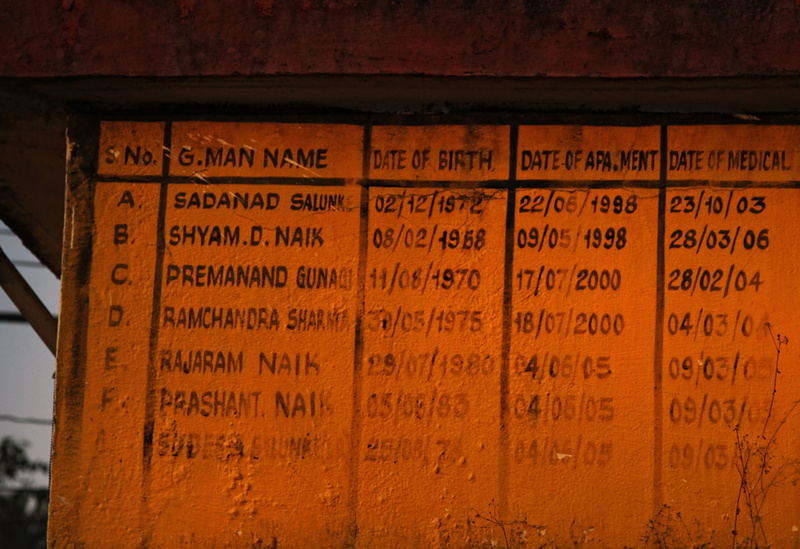 S No. G.MAN NAME DATE OF BIRTH DATE OF APA.MENT DATE OF MEDICAL
A. SADANAD SALUNKE 02/12/1972 22/06/1998 23/10/03
B. SHYAM.D. NAIK 08/02/1968 09/05/1998 28/03/06
C. PREMANAND GUNAGI 11/08/1970 17/07/2000 28/02/04
D. RAMCHANDRA SHARMA 30/05/1975 18/07/2000 04/03/04
E. RAJARAM NAIK 29/07/1980 04/06/05 09/03/05
F. PRASHANT. NAIK 04/06/05 09/03/05
SUDESH 04/06/05 09/03/